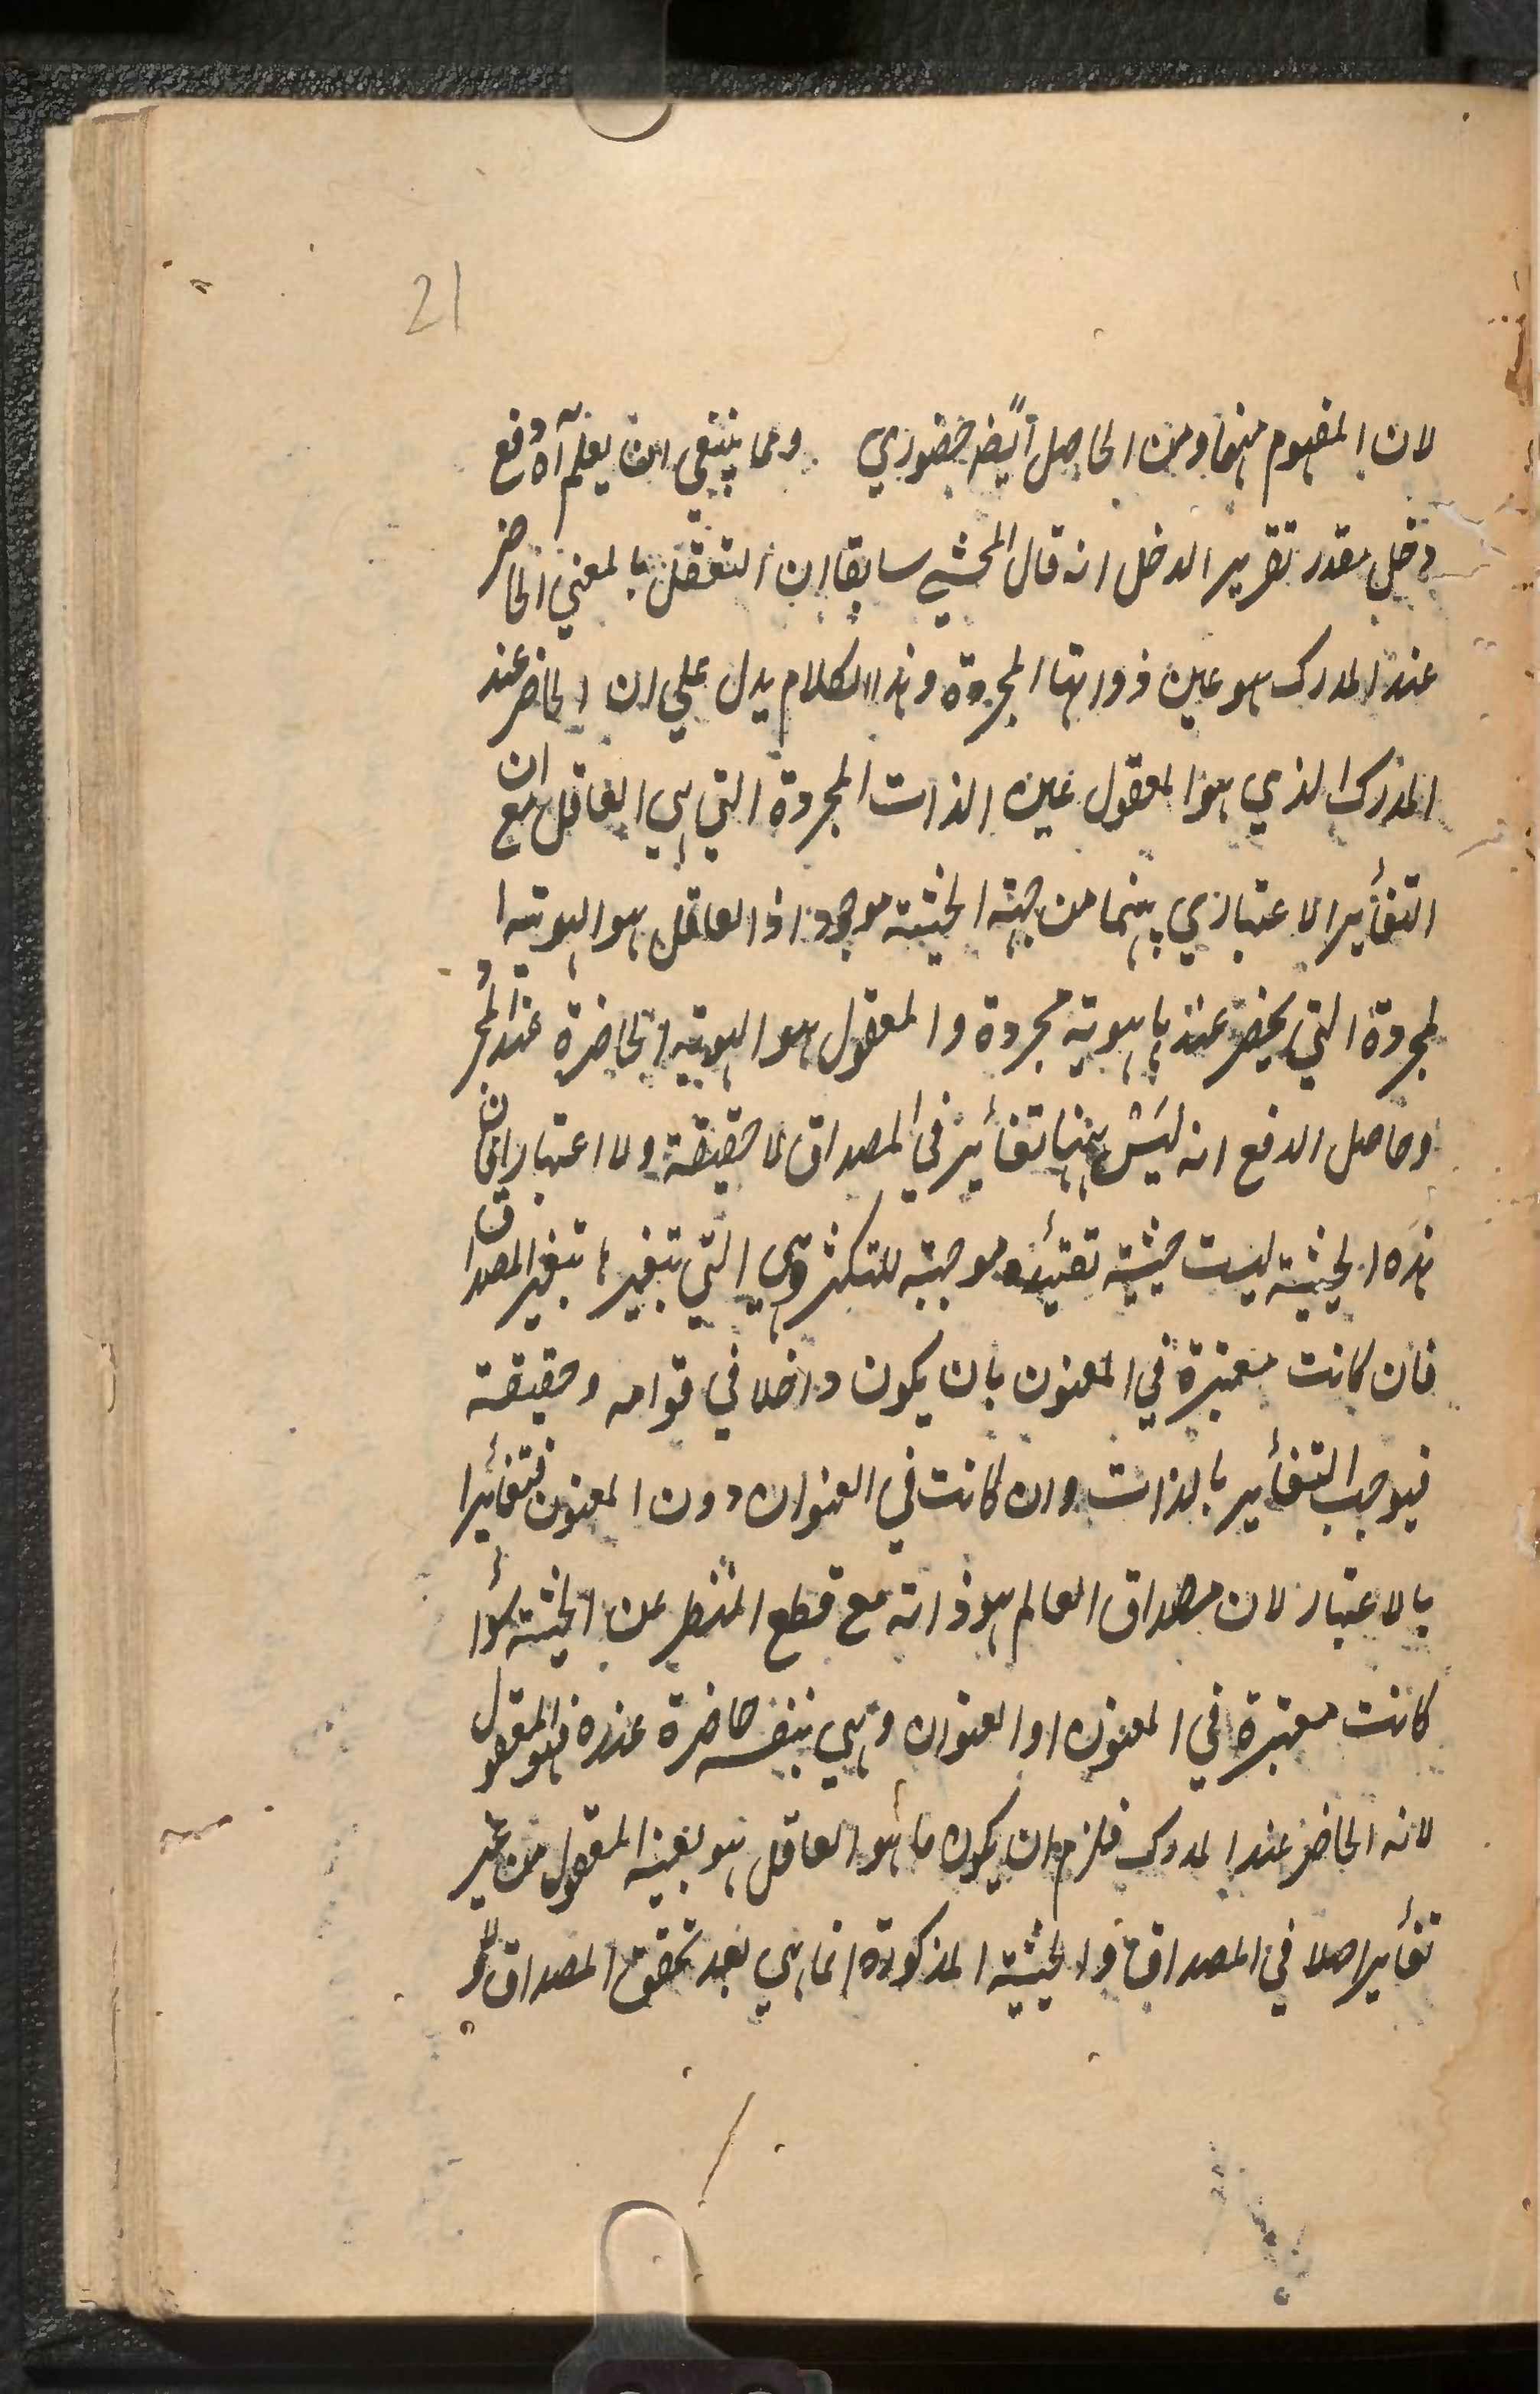 21
لان المفهوم منها ومن الحاصل ايضا حضوري ومما ينبغي ان يعلم آه دفع
دخل مقدر تقرير الدخل انه قال المحشي سابقا ان التعقل بالمعني الحاضر
عند المدرك هو عين ذواتها المجردة وهذا الكلام يدل علي ان الحاضر عند
المدرك الذي هو المعقول عين الذات المجردة التي هي العاقل مع ان
التغأير الاعتباري بينهما من جهة الحيثية موجود اذ العاقل هو الهوية ا
لمجردة التي يحضر عندها هوية مجردة والمعقول هو الهوية الحاضرة عند المجرد
وحاصل الدفع انه ليس ههنا تغأير في المصداق لا حقيقة ولا اعتبارا فان
هذه الحيثية ليست حيثية تقييدة موجبة للتكثر وهي التي بتغيرها يتغير المصداق
فان كانت معتبرة في المعنون بان يكون داخلا في قوامه وحقيقة
فيوجب التغأير بالذات وان كانت في العنوان دون المعنون فتغأيرا
بالاعتبار لان مصداق العالم هو ذاته مع قطع النظر عن الحيثية سوأ
كانت معتبرة في المعنون او العنوان وهي بنفسه حاضرة عنده فهو المعقول
لانه الحاضر عند المدرك فلزم ان يكون ما هو العاقل هو بعينه المعقول من غير
تغأير اصلا في المصداق والحيثية المذكورة انما هي بعد تحقق المصداق